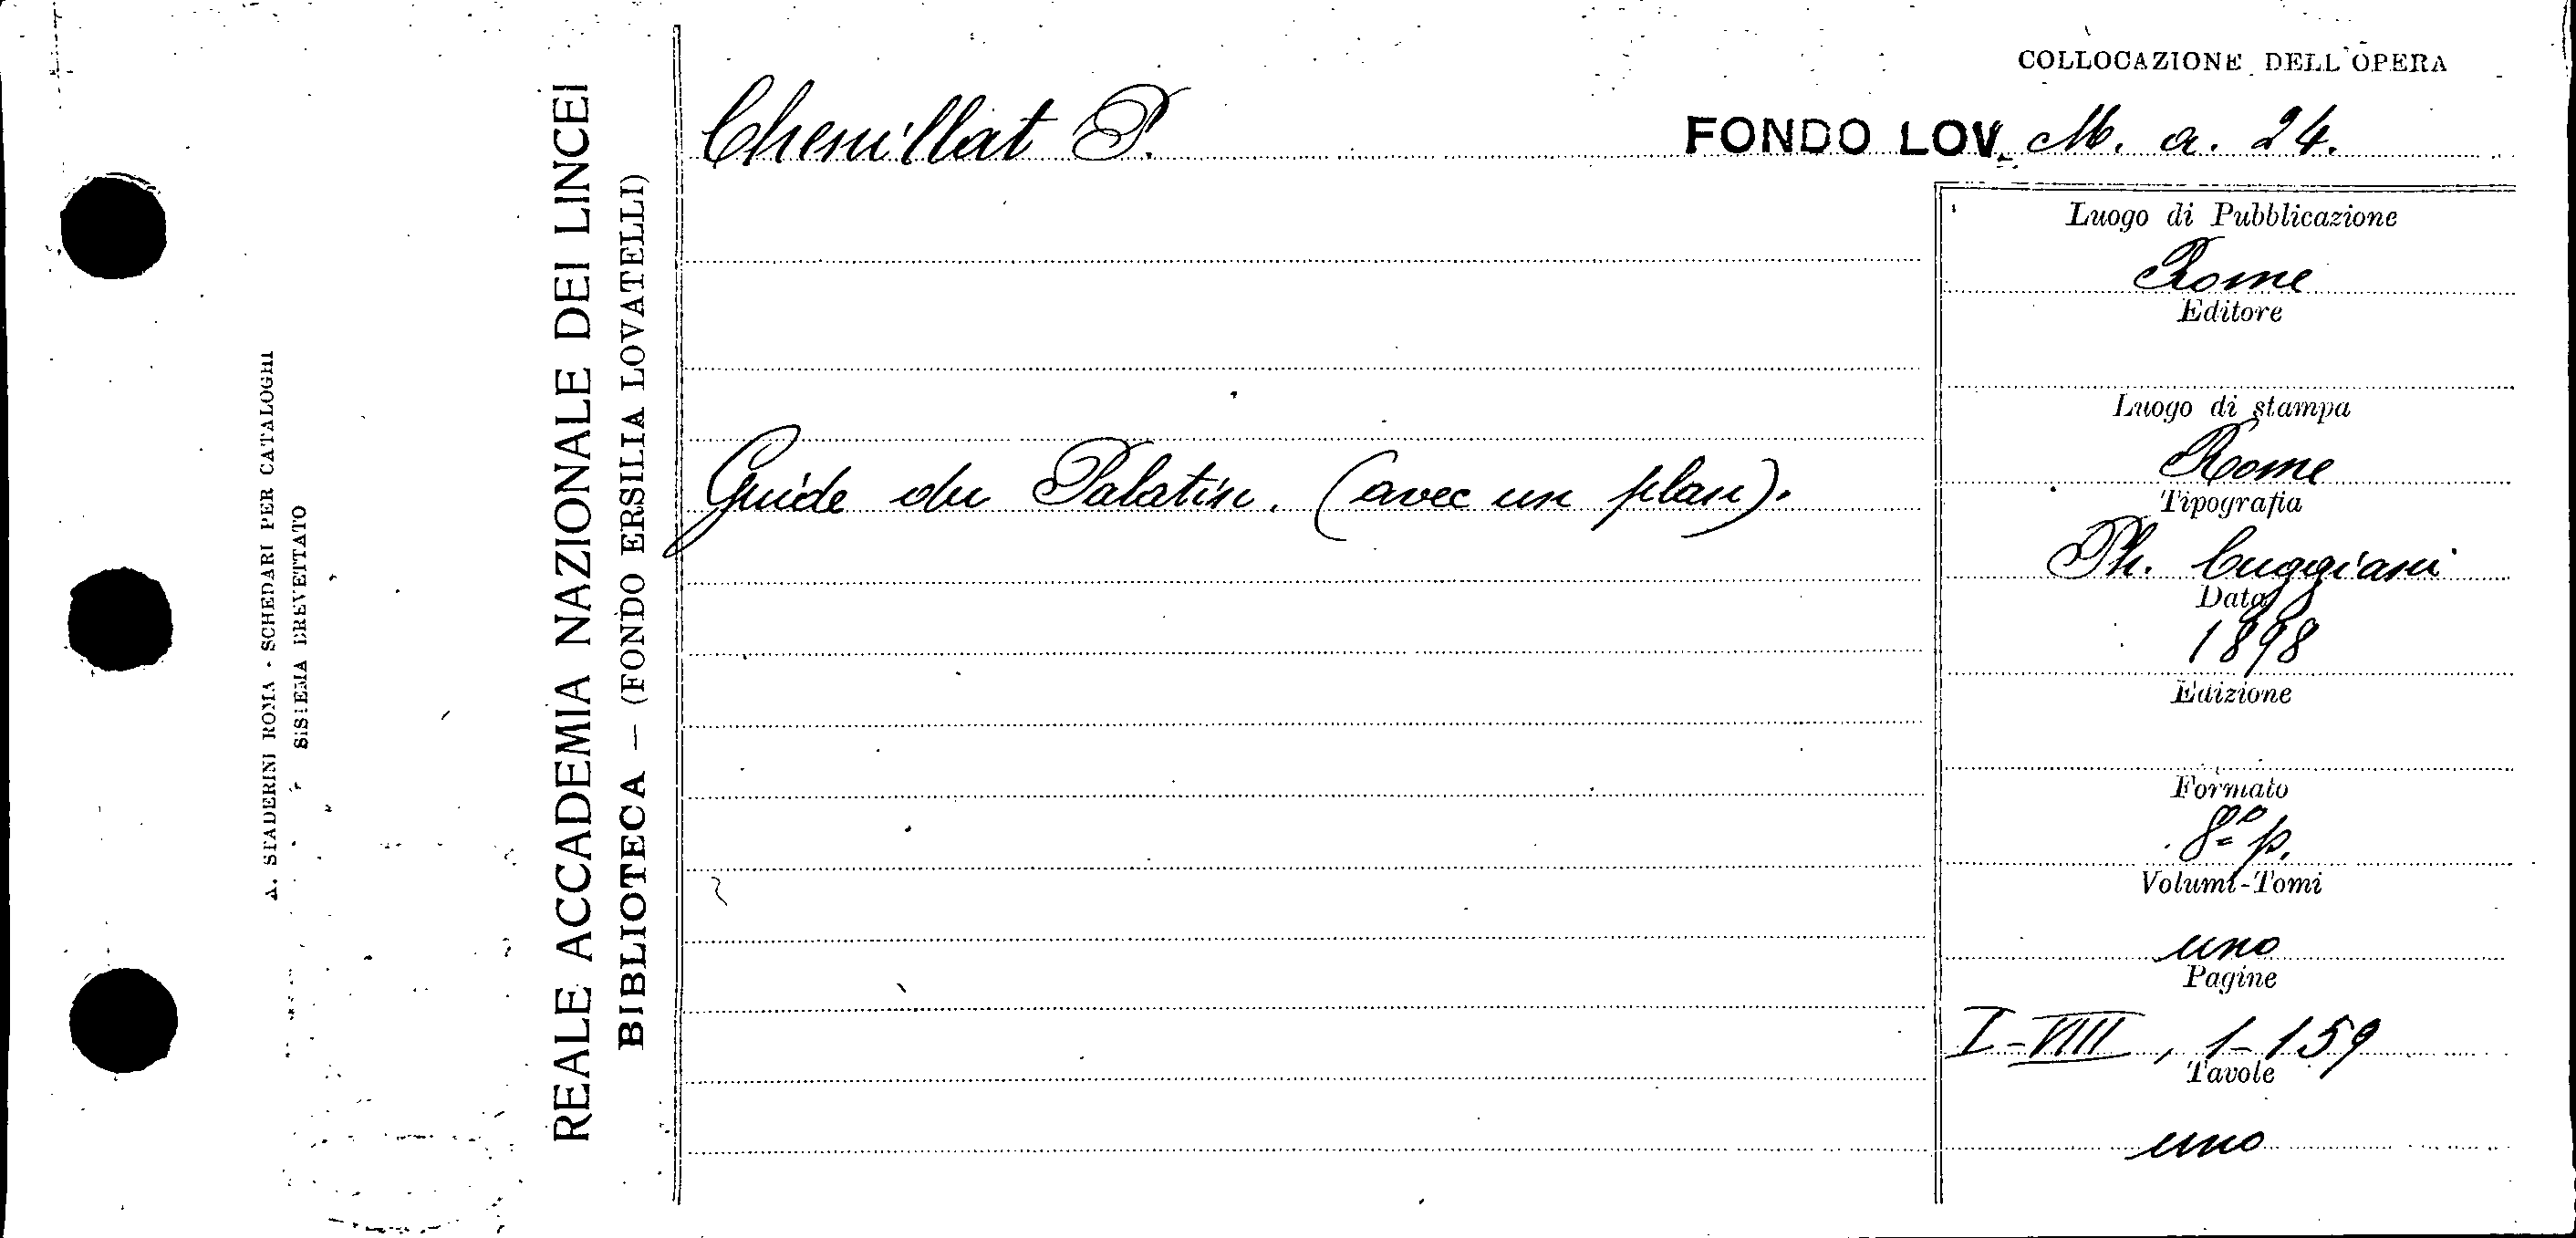 COLLOCAZIONE DELL'OPERA
Chenillat P.
FONDO LOV. M. a. 24.
Guide du Palatin. (avec un plan).
Luogo di Pubblicazione
Rome
Editore
Luogo di stampa
Rome
Tipografia
Ph. Cuggiani
Data
1898
Edizione
Formato
8º p.
Volumi-Tomi
uno
Pagine
I-VIII, 1-159
Tavole
uno
REALE ACCADEMIA NAZIONALE DEI LINCEI
BIBLIOTECA — (FONDO ERSILIA LOVATELLI)
A. STADERINI ROMA - SCHEDARI PER CATALOGHI
SISTEMA BREVETTATO